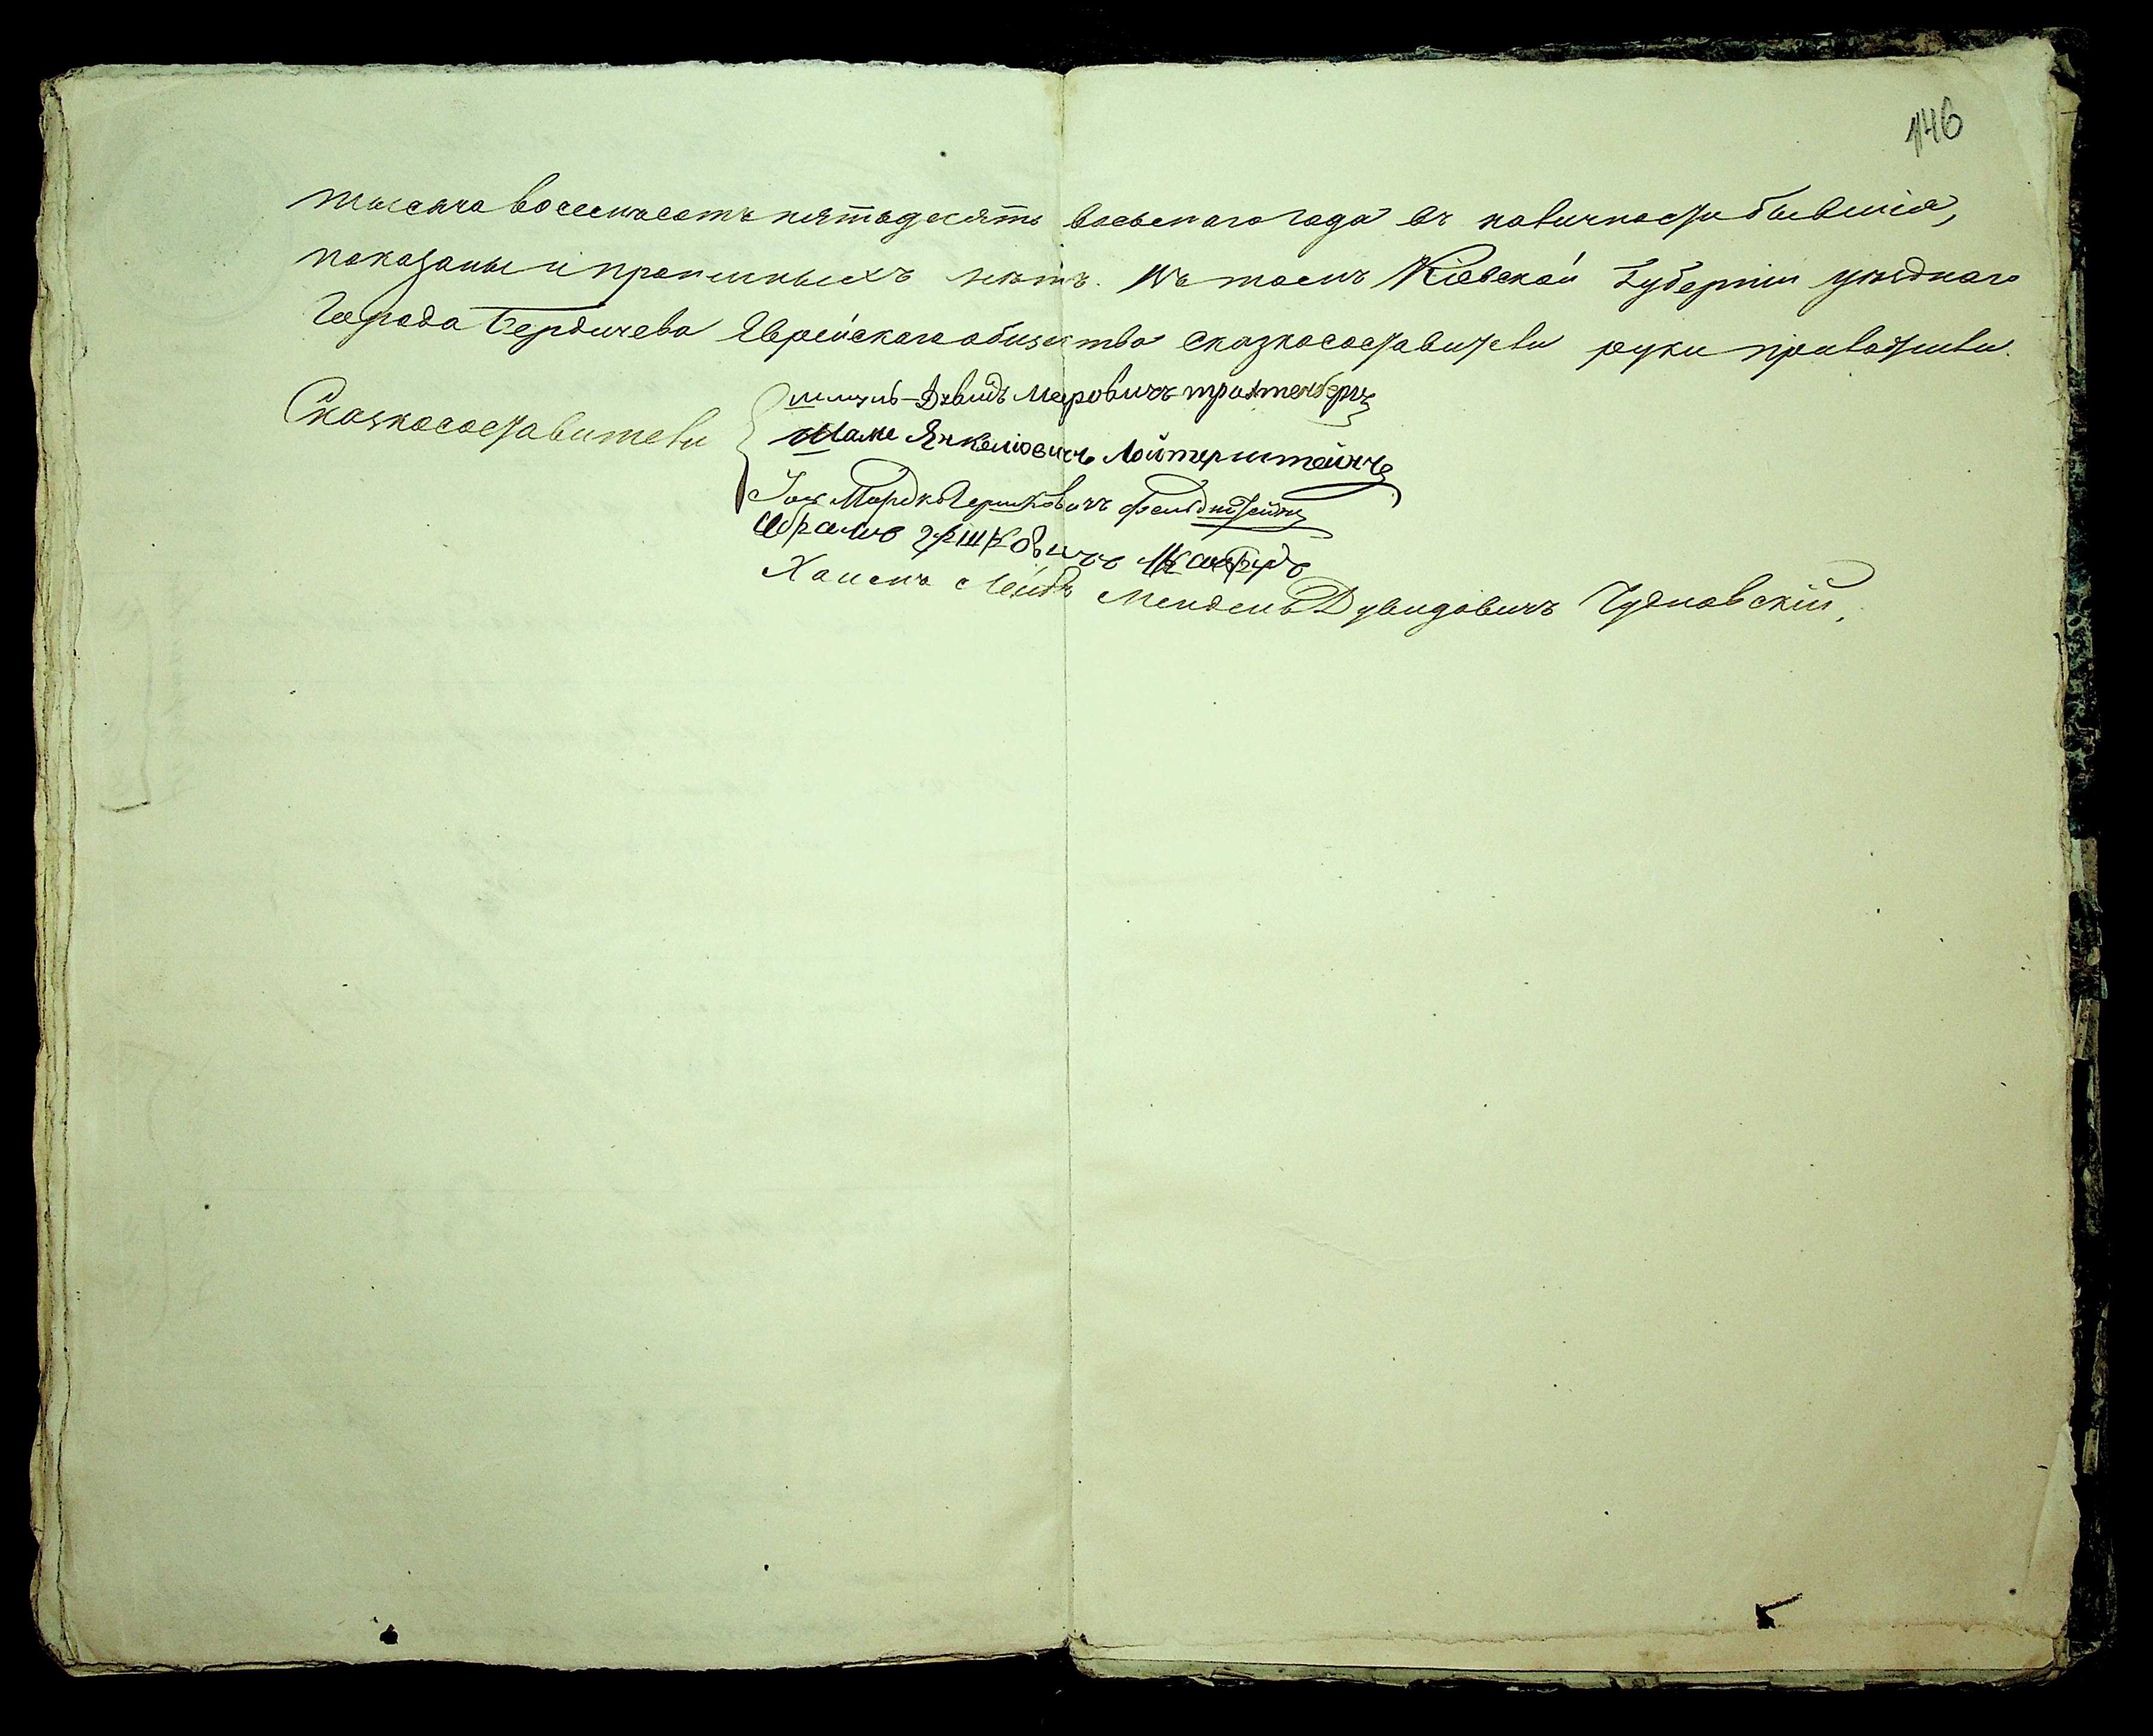 146
тысяча восемьсотъ пятьдесятъ восьмаго года въ наличности бывшія,
показаны и прописныхъ нѣтъ. Въ томъ Кіевской Губерніи уѣзднаго
Города Бердичева Еврейскаго общества сказкосоставители руки приложили.
Сказкосоставители
Дувидъ Меровичъ Трахтенбергъ
Шаме Янкеліовичъ Лойтерштейнъ
Мордко Гершковичъ Фельдштейнъ
Абрамъ Гершковичъ
Хаимъ Лейбъ Мендель Дувидовичъ Чудновскій.